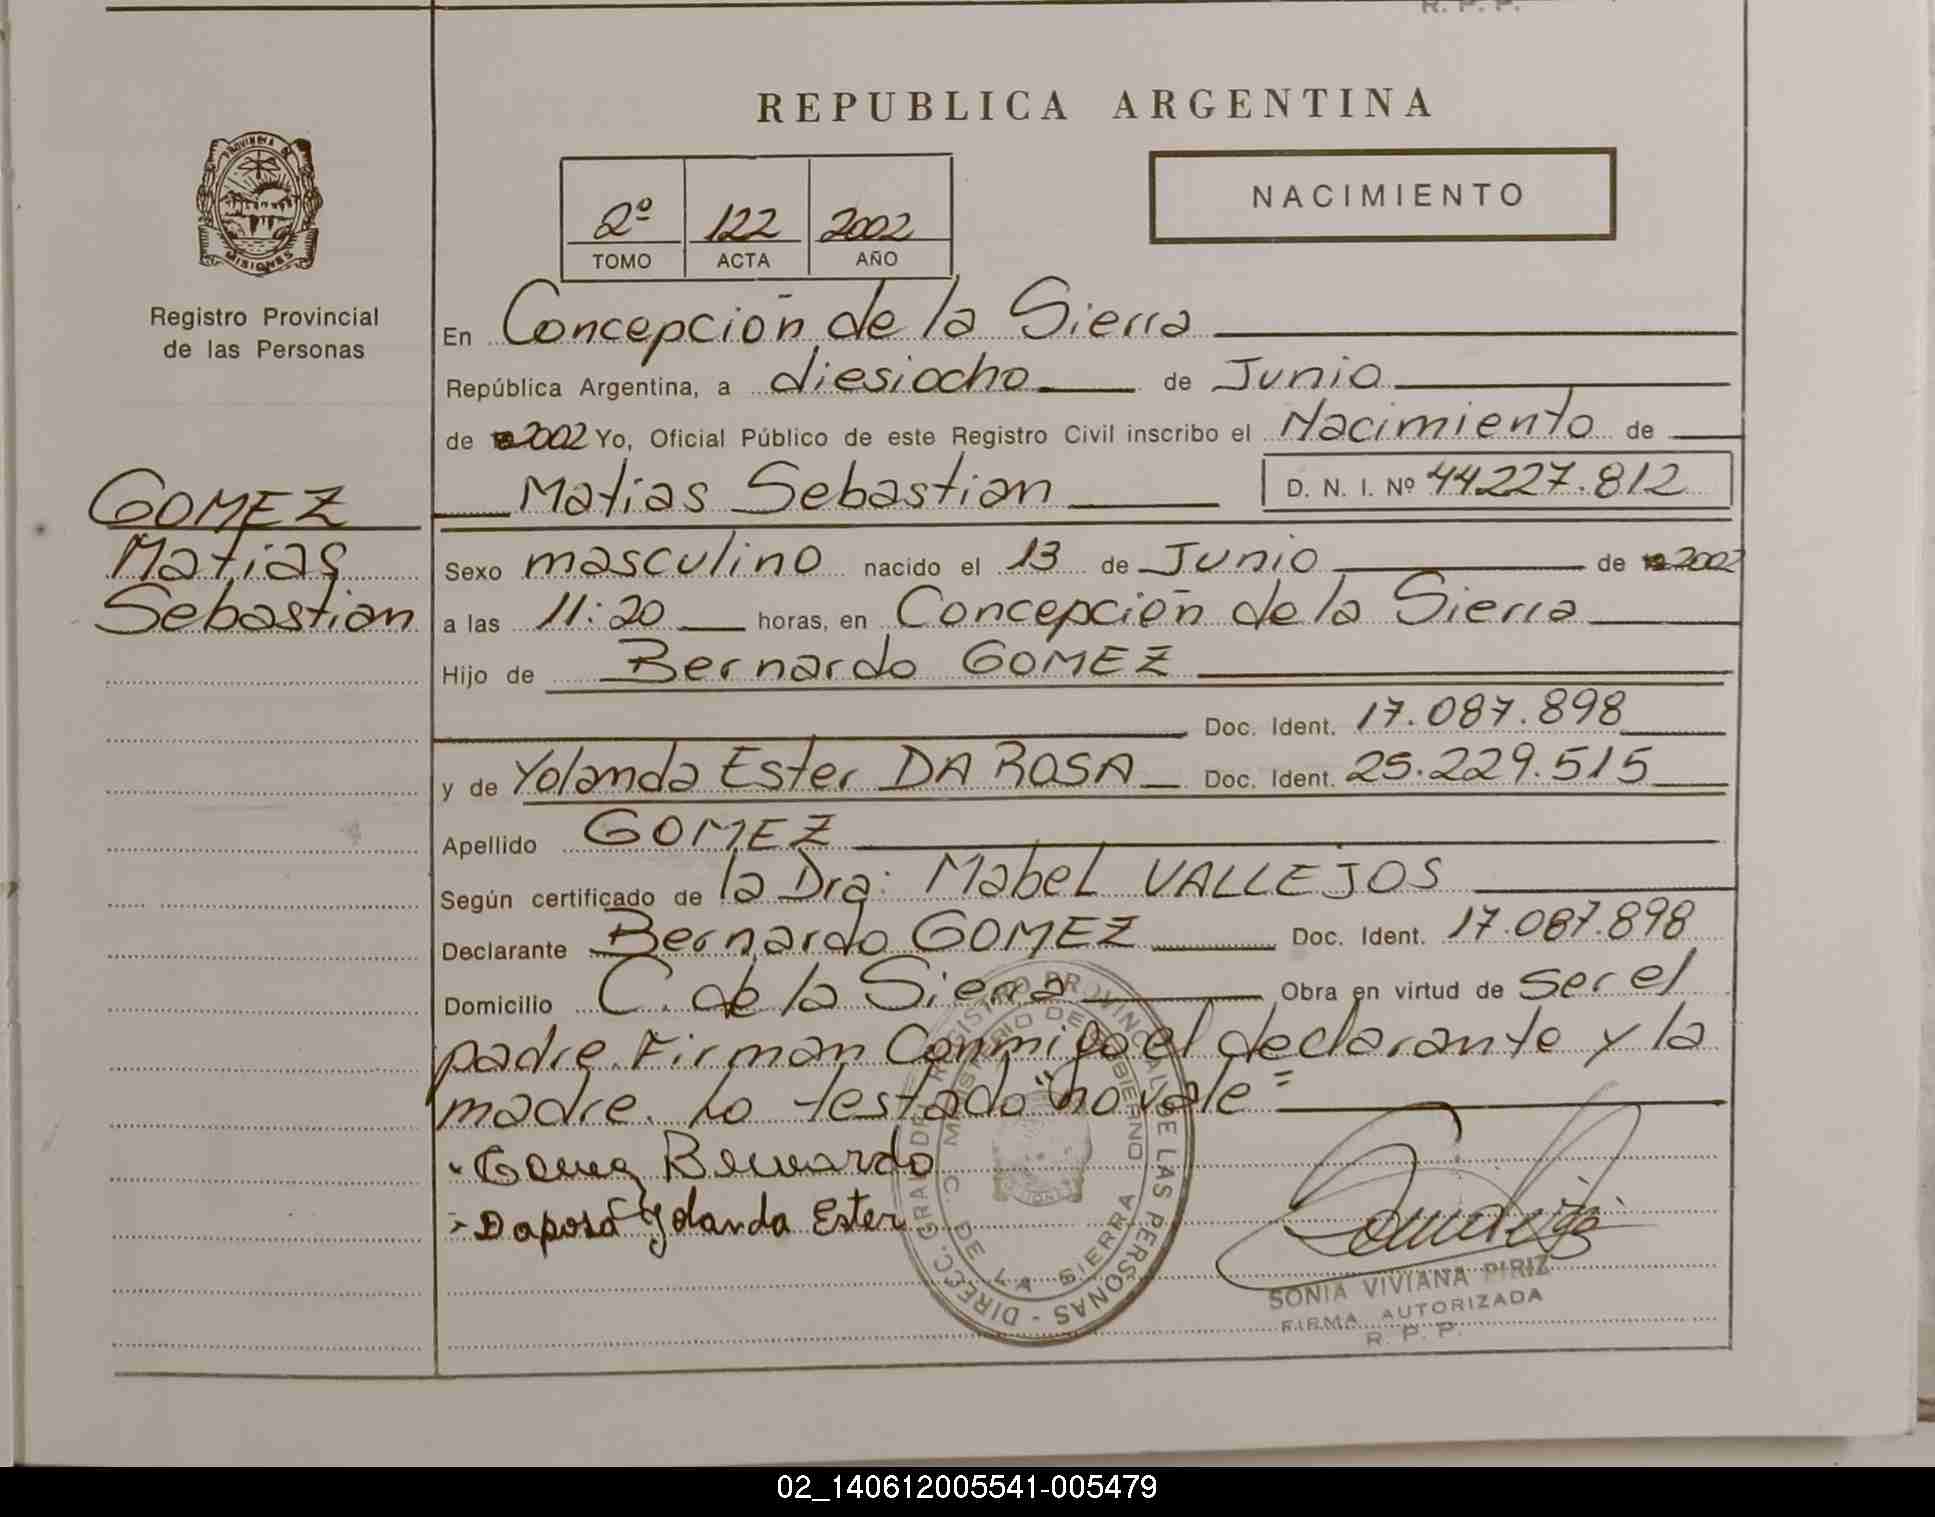 R. P. P.
REPUBLICA ARGENTINA
PROVINCIA DE
MISIONES
Registro Provincial
de las Personas
2º 122 2002
TOMO ACTA AÑO
NACIMIENTO
En Concepción de la Sierra
República Argentina, a diesiocho de Junio
de 2002 Yo, Oficial Público de este Registro Civil inscribo el Nacimiento de
Matias Sebastian D. N. I. Nº 44227.812
GOMEZ
Matias
Sebastian
Sexo masculino nacido el 13 de Junio de 2002
a las 11:20 horas, en Concepción de la Sierra
Hijo de Bernardo GOMEZ
Doc. Ident. 17.087.898
y de Yolanda Ester DA ROSA Doc. Ident. 25.229.515
Apellido GOMEZ
Según certificado de la Dra: Mabel VALLEJOS
Declarante Bernardo GOMEZ Doc. Ident. 17.087.898
Domicilio C. de la Sierra Obra en virtud de ser el
padre. Firman Conmigo el declarante y la
madre. Lo testado "no vale"
Gomez Bernardo
Daposa Yolanda Ester
DIREC. GRAL DE REGISTRO PROVINCIAL DE LAS PERSONAS -
MINISTERIO DE GOBIERNO
C. DE LA SIERRA
SONIA VIVIANA PIRIZ
FIRMA AUTORIZADA
R. P. P.
02_140612005541-005479